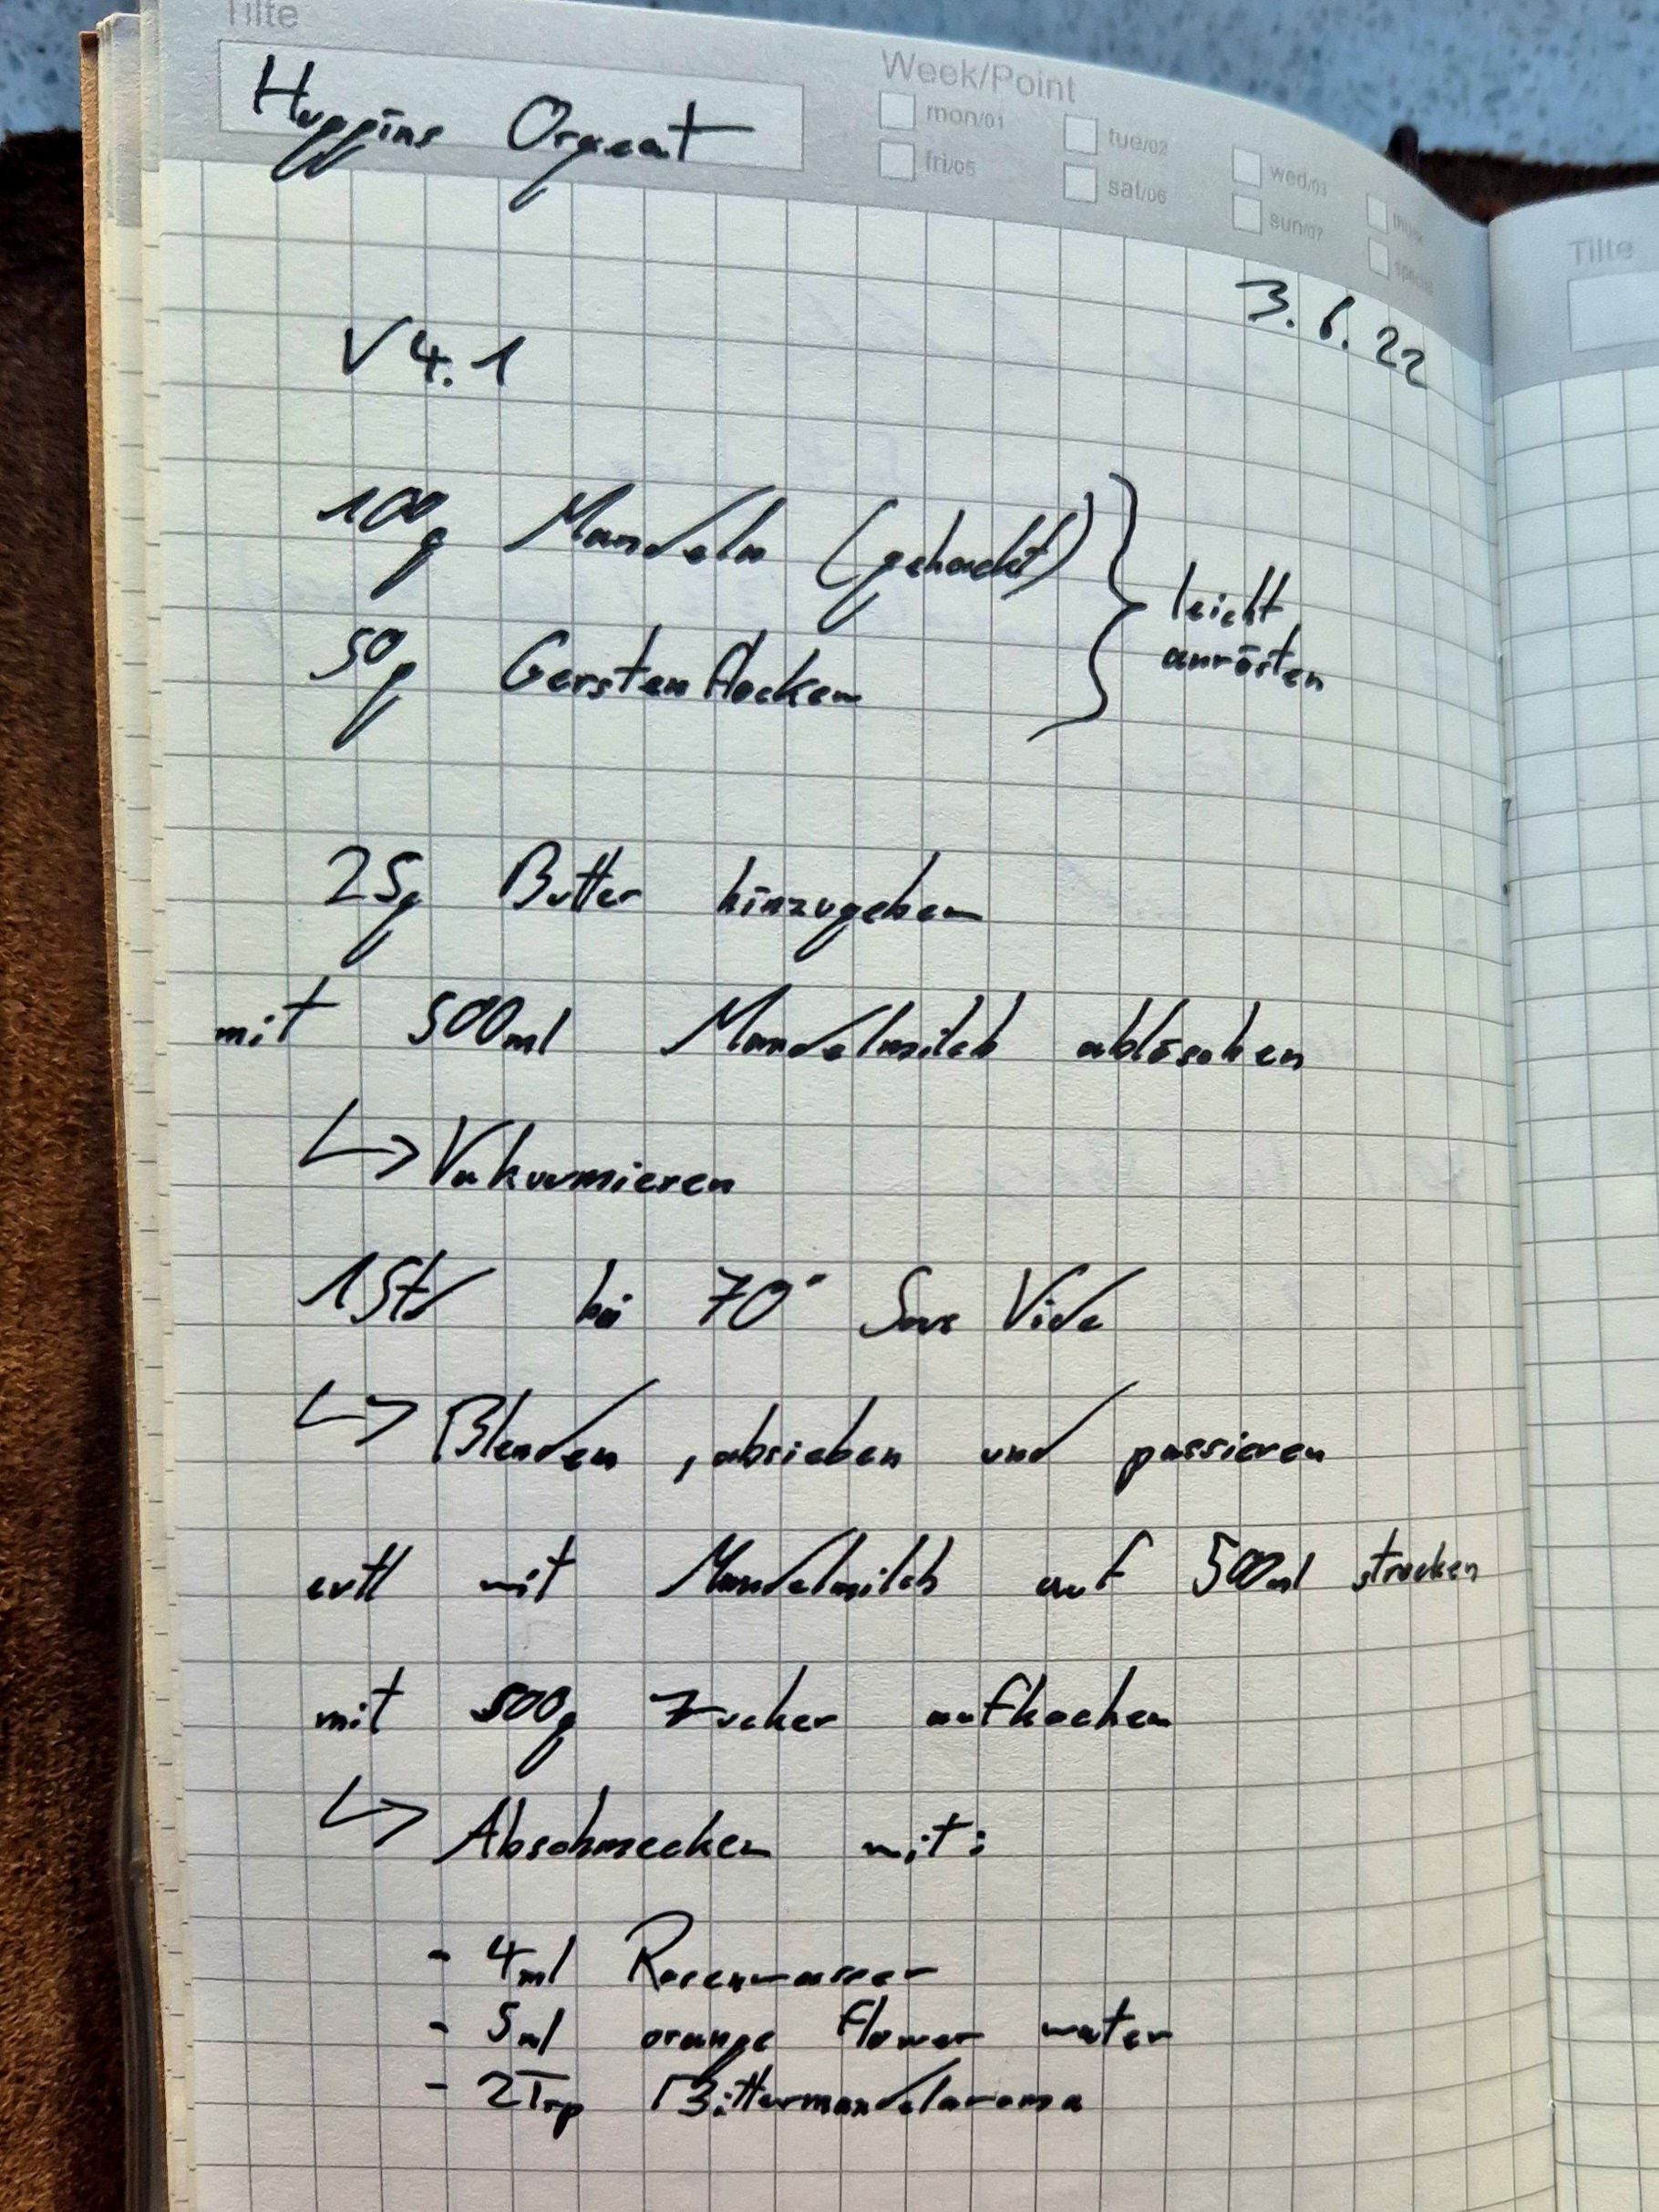 Tilte
Huggins Orgeat
Week/Point
mon/01 tue/02 wed/03
fri/05 sat/06 sun/07
Tilte
3.6.22
V4.1
100g Mandeln (gehackt)
50g Gerstenflocken
leicht
anrösten
25g Butter hinzugeben
mit 500ml Mandelmilch ablöschen
↳ Vakuumieren
1Std bei 70° Sous Vide
↳ Blenden, absieben und passieren
evtl mit Mandelmilch auf 500ml strecken
mit 500g Zucker aufkochen
↳ Abschmecken mit:
- 4ml Rosenwasser
- 5ml orange flower water
- 2Trp Bittermandelaroma